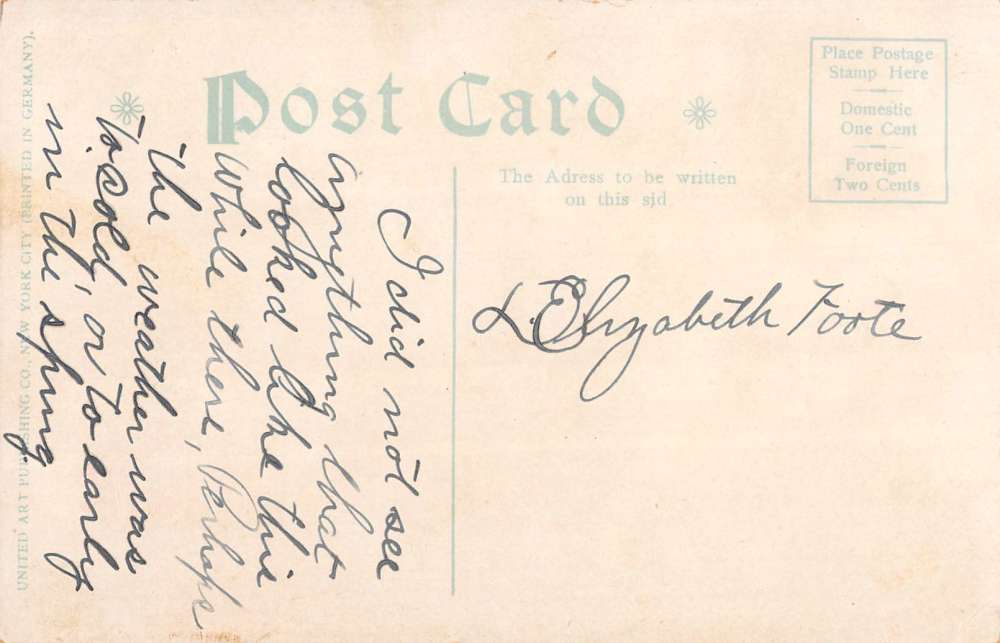 Post Card
Place Postage
Stamp Here
Domestic
One Cent
Foreign
Two Cents
The Adress to be written
on this sid
L. Elizabeth Foote
I did not see
anything that
looked like this
while there, Perhaps
the weather was
to cold, or to early
in the spring.
UNITED ART PUBLISHING CO., NEW YORK CITY (PRINTED IN GERMANY).